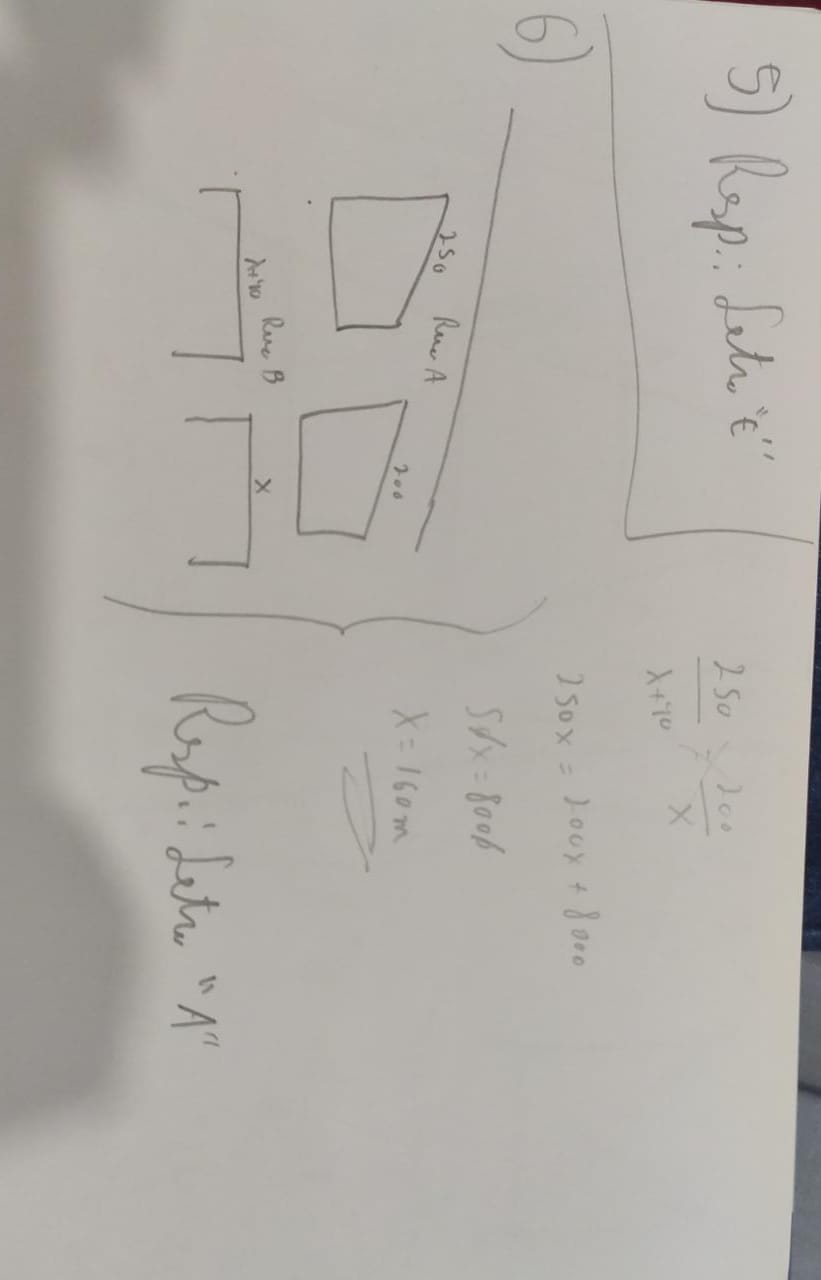 5) Resp.: Letra "E"
6)
250 Rua A
200
x+40 Rua B
x
250 = 200
x+40 x
250x = 200x + 8000
50x = 8000
x = 160m
Resp.: Letra "A"